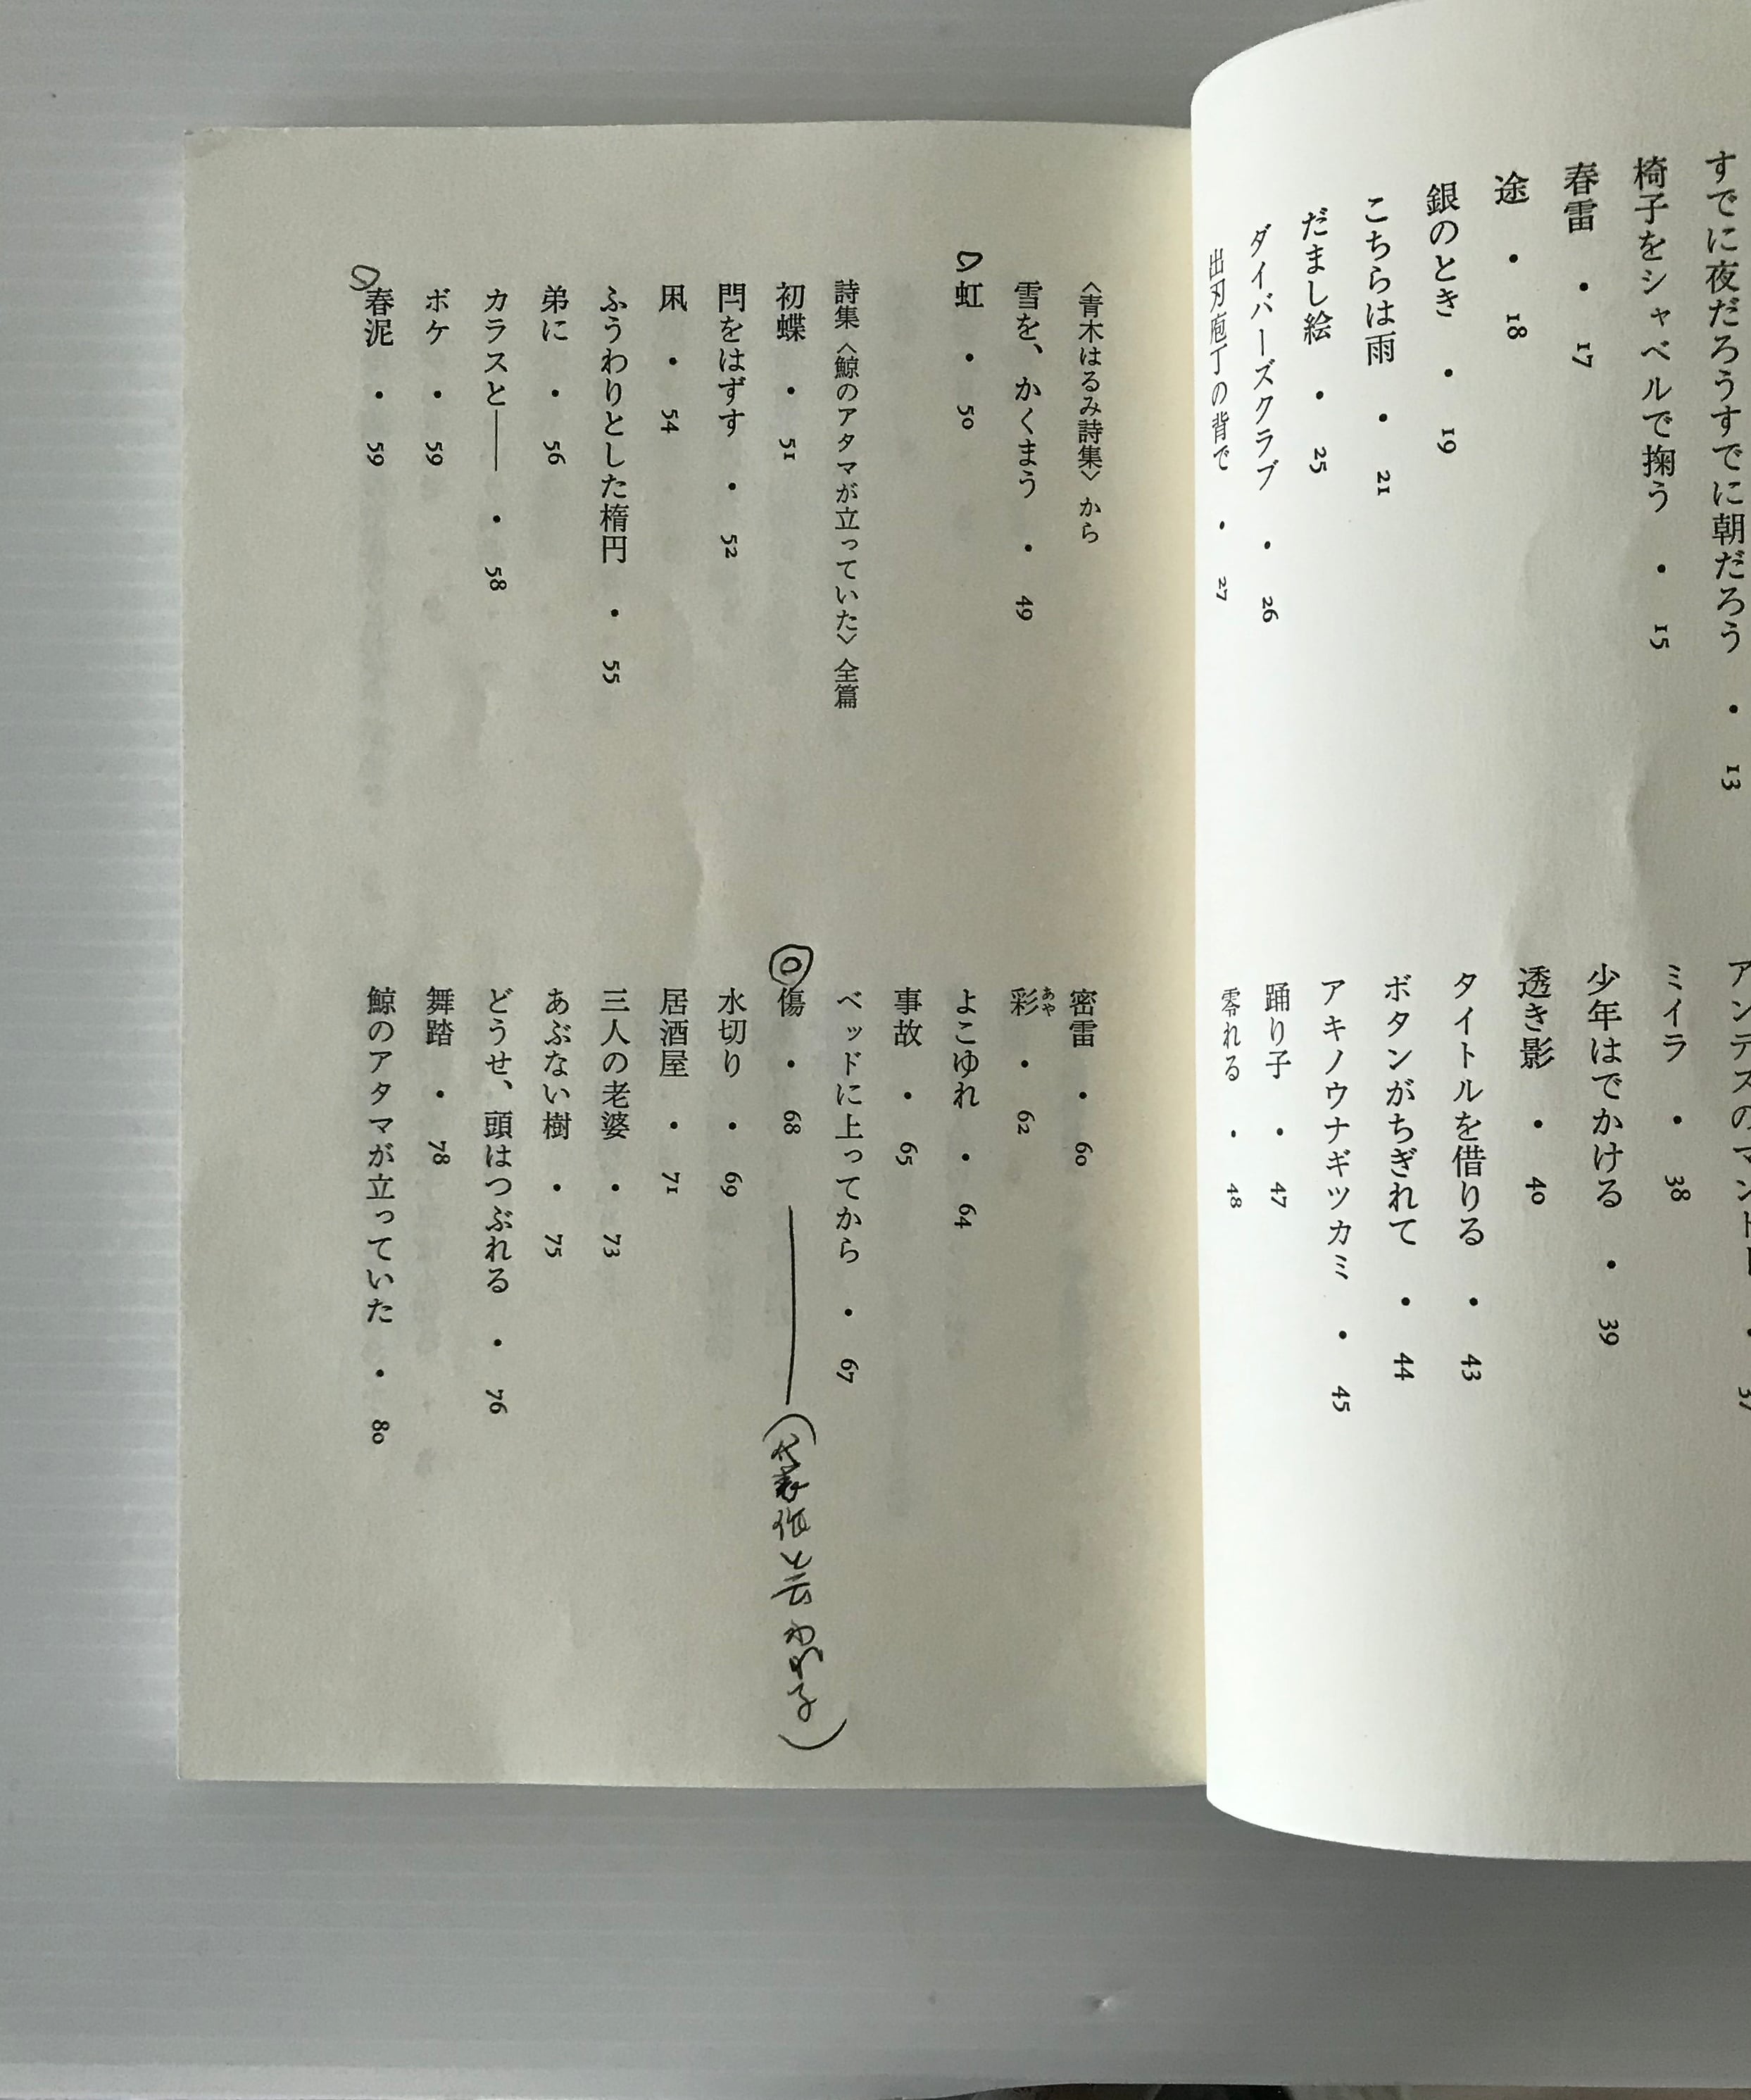 すでに夜だろうすでに朝だろう ・ 13
椅子をシャベルで掬う ・ 15
春雷 ・ 17
途 ・ 18
銀のとき ・ 19
こちらは雨 ・ 21
だまし絵 ・ 25
ダイバーズクラブ ・ 26
出刃庖丁の背で ・ 27
ミイラ ・ 38
少年はでかける ・ 39
透き影 ・ 40
タイトルを借りる ・ 43
ボタンがちぎれて ・ 44
アキノウナギツカミ ・ 45
踊り子 ・ 47
零れる ・ 48
〈青木はるみ詩集〉から
雪を、かくまう ・ 49
虹 ・ 50
詩集〈鯨のアタマが立っていた〉全篇
初蝶 ・ 51
閂をはずす ・ 52
凩 ・ 54
ふうわりとした楕円 ・ 55
弟に ・ 56
カラスと── ・ 58
ボケ ・ 59
春泥 ・ 59
密雷 ・ 60
彩 あや ・ 62
よこゆれ ・ 64
事故 ・ 65
ベッドに上ってから ・ 67
◎傷 ・ 68 ──(代表作と云
水切り ・ 69
居酒屋 ・ 71
三人の老婆 ・ 73
あぶない樹 ・ 75
どうせ、頭はつぶれる ・ 76
舞踏 ・ 78
鯨のアタマが立っていた ・ 80